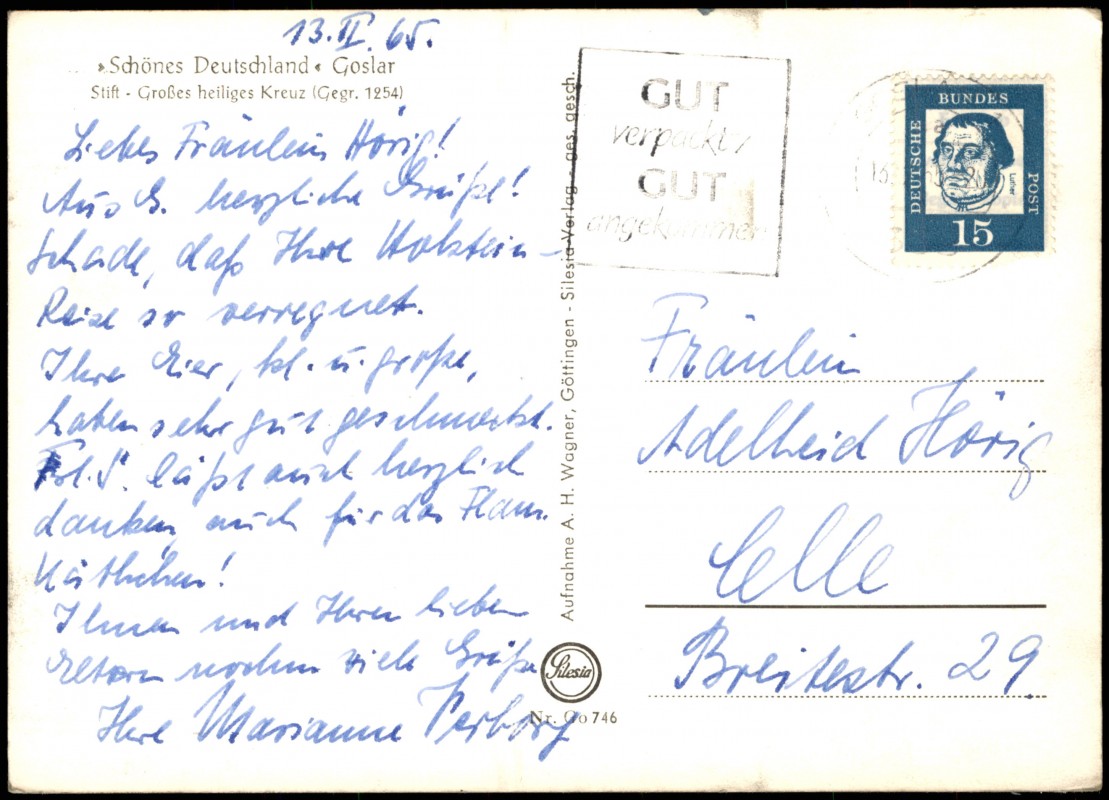 13.II.65.
»Schönes Deutschland« Goslar
Stift - Großes heiliges Kreuz (Gegr. 1254)
Liebes Fräulein Hörig!
Aus G. herzliche Grüße!
Schade, daß Ihre Holstein-
Reise so verregnet.
Ihre Eier, kl. u. große,
haben sehr gut geschmeckt.
läßt auch herzlich
danken, auch für das Flam.
Kätchen!
Ihnen und Ihren lieben
Eltern nochm viele Grüße
Ihre Marianne
Aufnahme A. H. Wagner, Göttingen - Silesia-Verlag - ges. gesch.
Silesia
Nr. Go 746
GUT
verpackt,
GUT
angekommen
DEUTSCHE
BUNDES
POST
Luther
15
Fräulein
Adelheid Hörig
Celle
Breitestr. 29